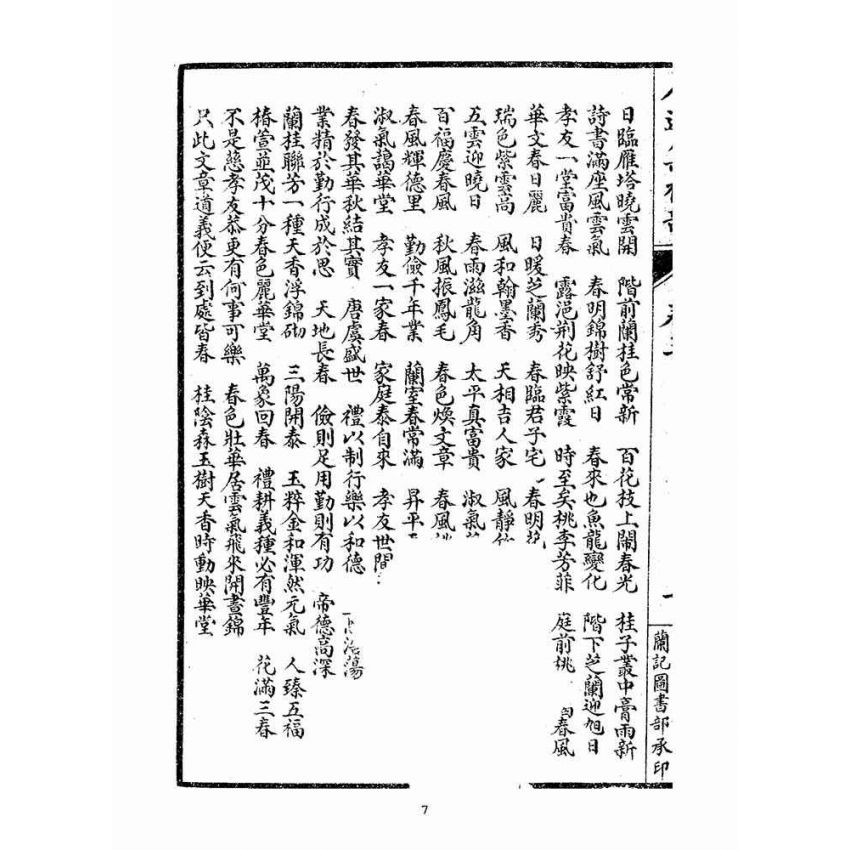 蘭記圖書部承印
日臨雁塔曉雲開 階前蘭桂色常新 百花枝上鬧春光 桂子叢中膏雨新
詩書滿座風雲氣 春明錦樹舒紅日 春來也魚龍變化 階下芝蘭迎旭日
孝友一堂富貴春 露浥荆花映紫霞 時至矣桃李芳菲 庭前桃 春風
華文春日麗 日暖芝蘭秀 春臨君子宅 春明
瑞色紫雲高 風和翰墨香 天相吉人家 風靜
五雲迎曉日 春雨滋龍角 太平真富貴 淑氣
百福慶春風 秋風振鳳毛 春色煥文章 春風
春風輝德里 勤儉千年業 蘭室春常滿 昇平
淑氣藹華堂 孝友一家春 家庭泰自來 孝友世間
春發其華秋結其實 唐虞盛世 禮以制行樂以和德 浩蕩
業精於勤行成於思 天地長春 儉則足用勤則有功 帝德高深
蘭桂聯芳一種天香浮錦砌 三陽開泰 玉粹金和渾然元氣 人臻五福
椿萱並茂十分春色麗華堂 萬象回春 禮耕義種必有豐年 花滿三春
不是慈孝友恭更有何事可樂 春色壯華居雲氣飛來開晝錦
只此文章道義便云到處皆春 桂陰森玉樹天香時動映華堂
7